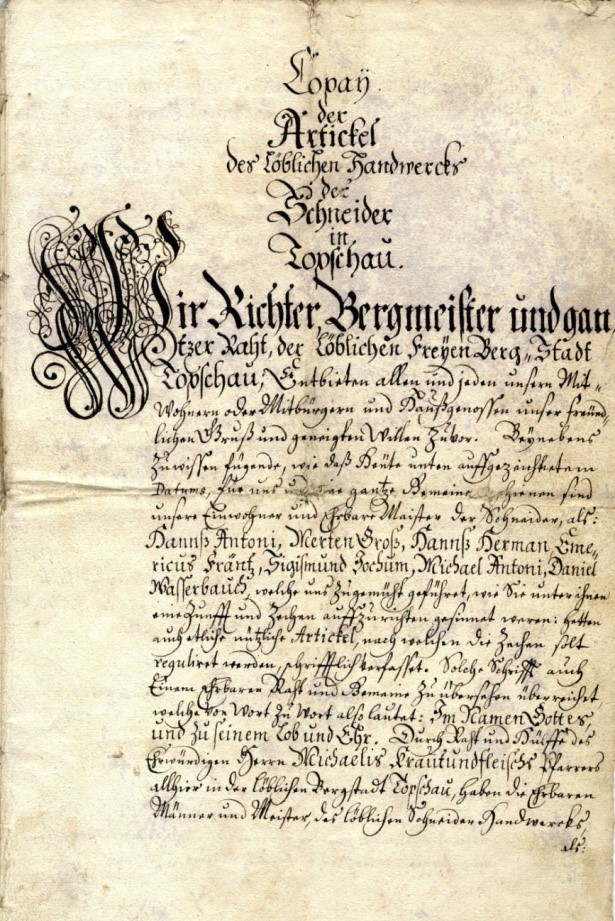 Copaÿ
der
Artickel
des Löblichen Handwercks
der
Schneider
in
Topschau.
Wir Richter, Bergmeister und gan,
tzer Raht, der Löblichen Freyen Berg-Stadt
Topschau, Entbieten allen und jeden unsern Mit-
Wohnern oder Mitbürgern und Haußgenossen unser freünd-
lichen Gruß und geneigten Willen Zuvor. Beynebens
Zuwissen fügende, wie daß Heüte unten auffgezeichtetem
Datums, für uns und gantze Gemeine sind
unsere Einwohner und Ehrbare Maister der Schneider, als:
Hannß Antoni, Merten Groß, Hannß Herman, Eme-
ricus Fräntz, Sigismund Jochum, Michael Antoni, Daniel
Wasserbauch, welche uns Zugemüht geführet, wie Sie unter ihnen
eine Zunfft und Zechen auffzurichten gesinnet weren: hetten
auch etliche nützliche Artickel, nach welchen die Zechen solt
reguliret werden, schrifftlich verfasset. Solche Schrifft auch
Einem Ehrbaren Raht und Gemeine Zu übersehen überreichet
welche von Wort Zu Wort also lautet: Im Namen Gottes
und Zu seinem Lob und Ehr. Durch Raht und Hülffe des
Ehrwürdigen Herrn Michaelis Krautundfleischs Pfarrers
allhier in der Löblichen Bergstadt Topschau, haben die Ehrbaren
Männer und Meister, des Löblichen Schneider Handwercks,
als: